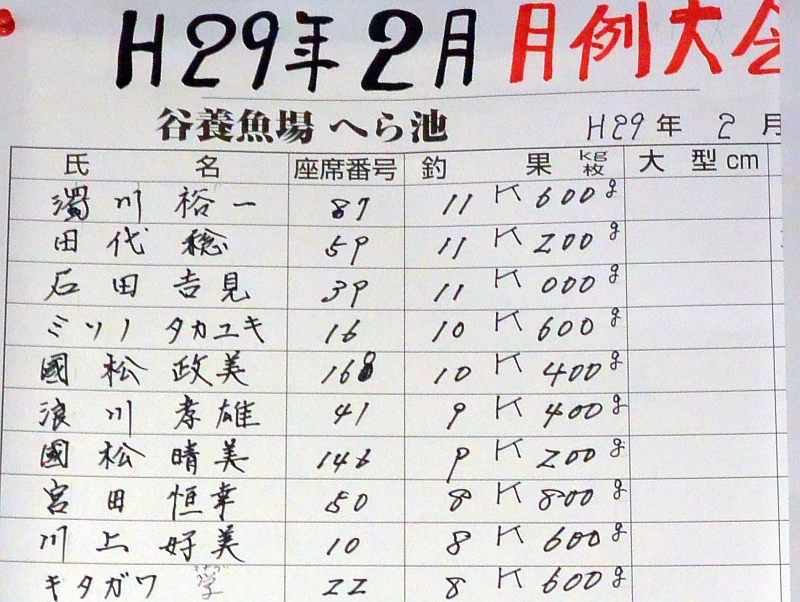 H29年2月 月例大会
谷養魚場 へら池 H29年 2月
氏 名 座席番号 釣 果 kg 枚 大 型 cm
濁川 裕一 87 11K 600g
田代 稔 59 11K 200g
石田 吉見 39 11K 000g
ミソノ タカユキ 16 10K 600g
國松 政美 168 10K 400g
浪川 孝雄 41 9K 400g
國松 晴美 146 9K 200g
宮田 恒幸 50 8K 800g
川上 好美 10 8K 600g
キタガワ 学 22 8K 600g